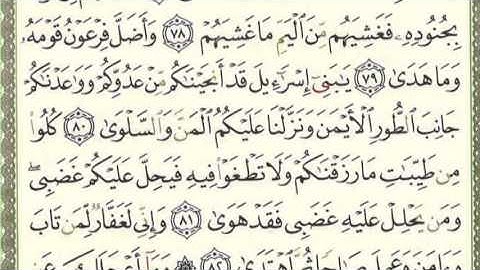 بِجُنُودِهِۦ فَغَشِيَهُم مِّنَ ٱلْيَمِّ مَا غَشِيَهُمْ ٧٨ وَأَضَلَّ فِرْعَوْنُ قَوْمَهُۥ
وَمَا هَدَىٰ ٧٩ يَٰبَنِىٓ إِسْرَٰٓءِيلَ قَدْ أَنجَيْنَٰكُم مِّنْ عَدُوِّكُمْ وَوَٰعَدْنَٰكُمْ
جَانِبَ ٱلطُّورِ ٱلْأَيْمَنَ وَنَزَّلْنَا عَلَيْكُمُ ٱلْمَنَّ وَٱلسَّلْوَىٰ ٨٠ كُلُوا۟
مِن طَيِّبَٰتِ مَا رَزَقْنَٰكُمْ وَلَا تَطْغَوْا۟ فِيهِ فَيَحِلَّ عَلَيْكُمْ غَضَبِىۖ
وَمَن يَحْلِلْ عَلَيْهِ غَضَبِى فَقَدْ هَوَىٰ ٨١ وَإِنِّى لَغَفَّارٌ لِّمَن تَابَ
وَءَامَنَ وَعَمِلَ صَٰلِحًا ثُمَّ ٱهْتَدَىٰ ٨٢ ۞ وَمَآ أَعْجَلَكَ عَن